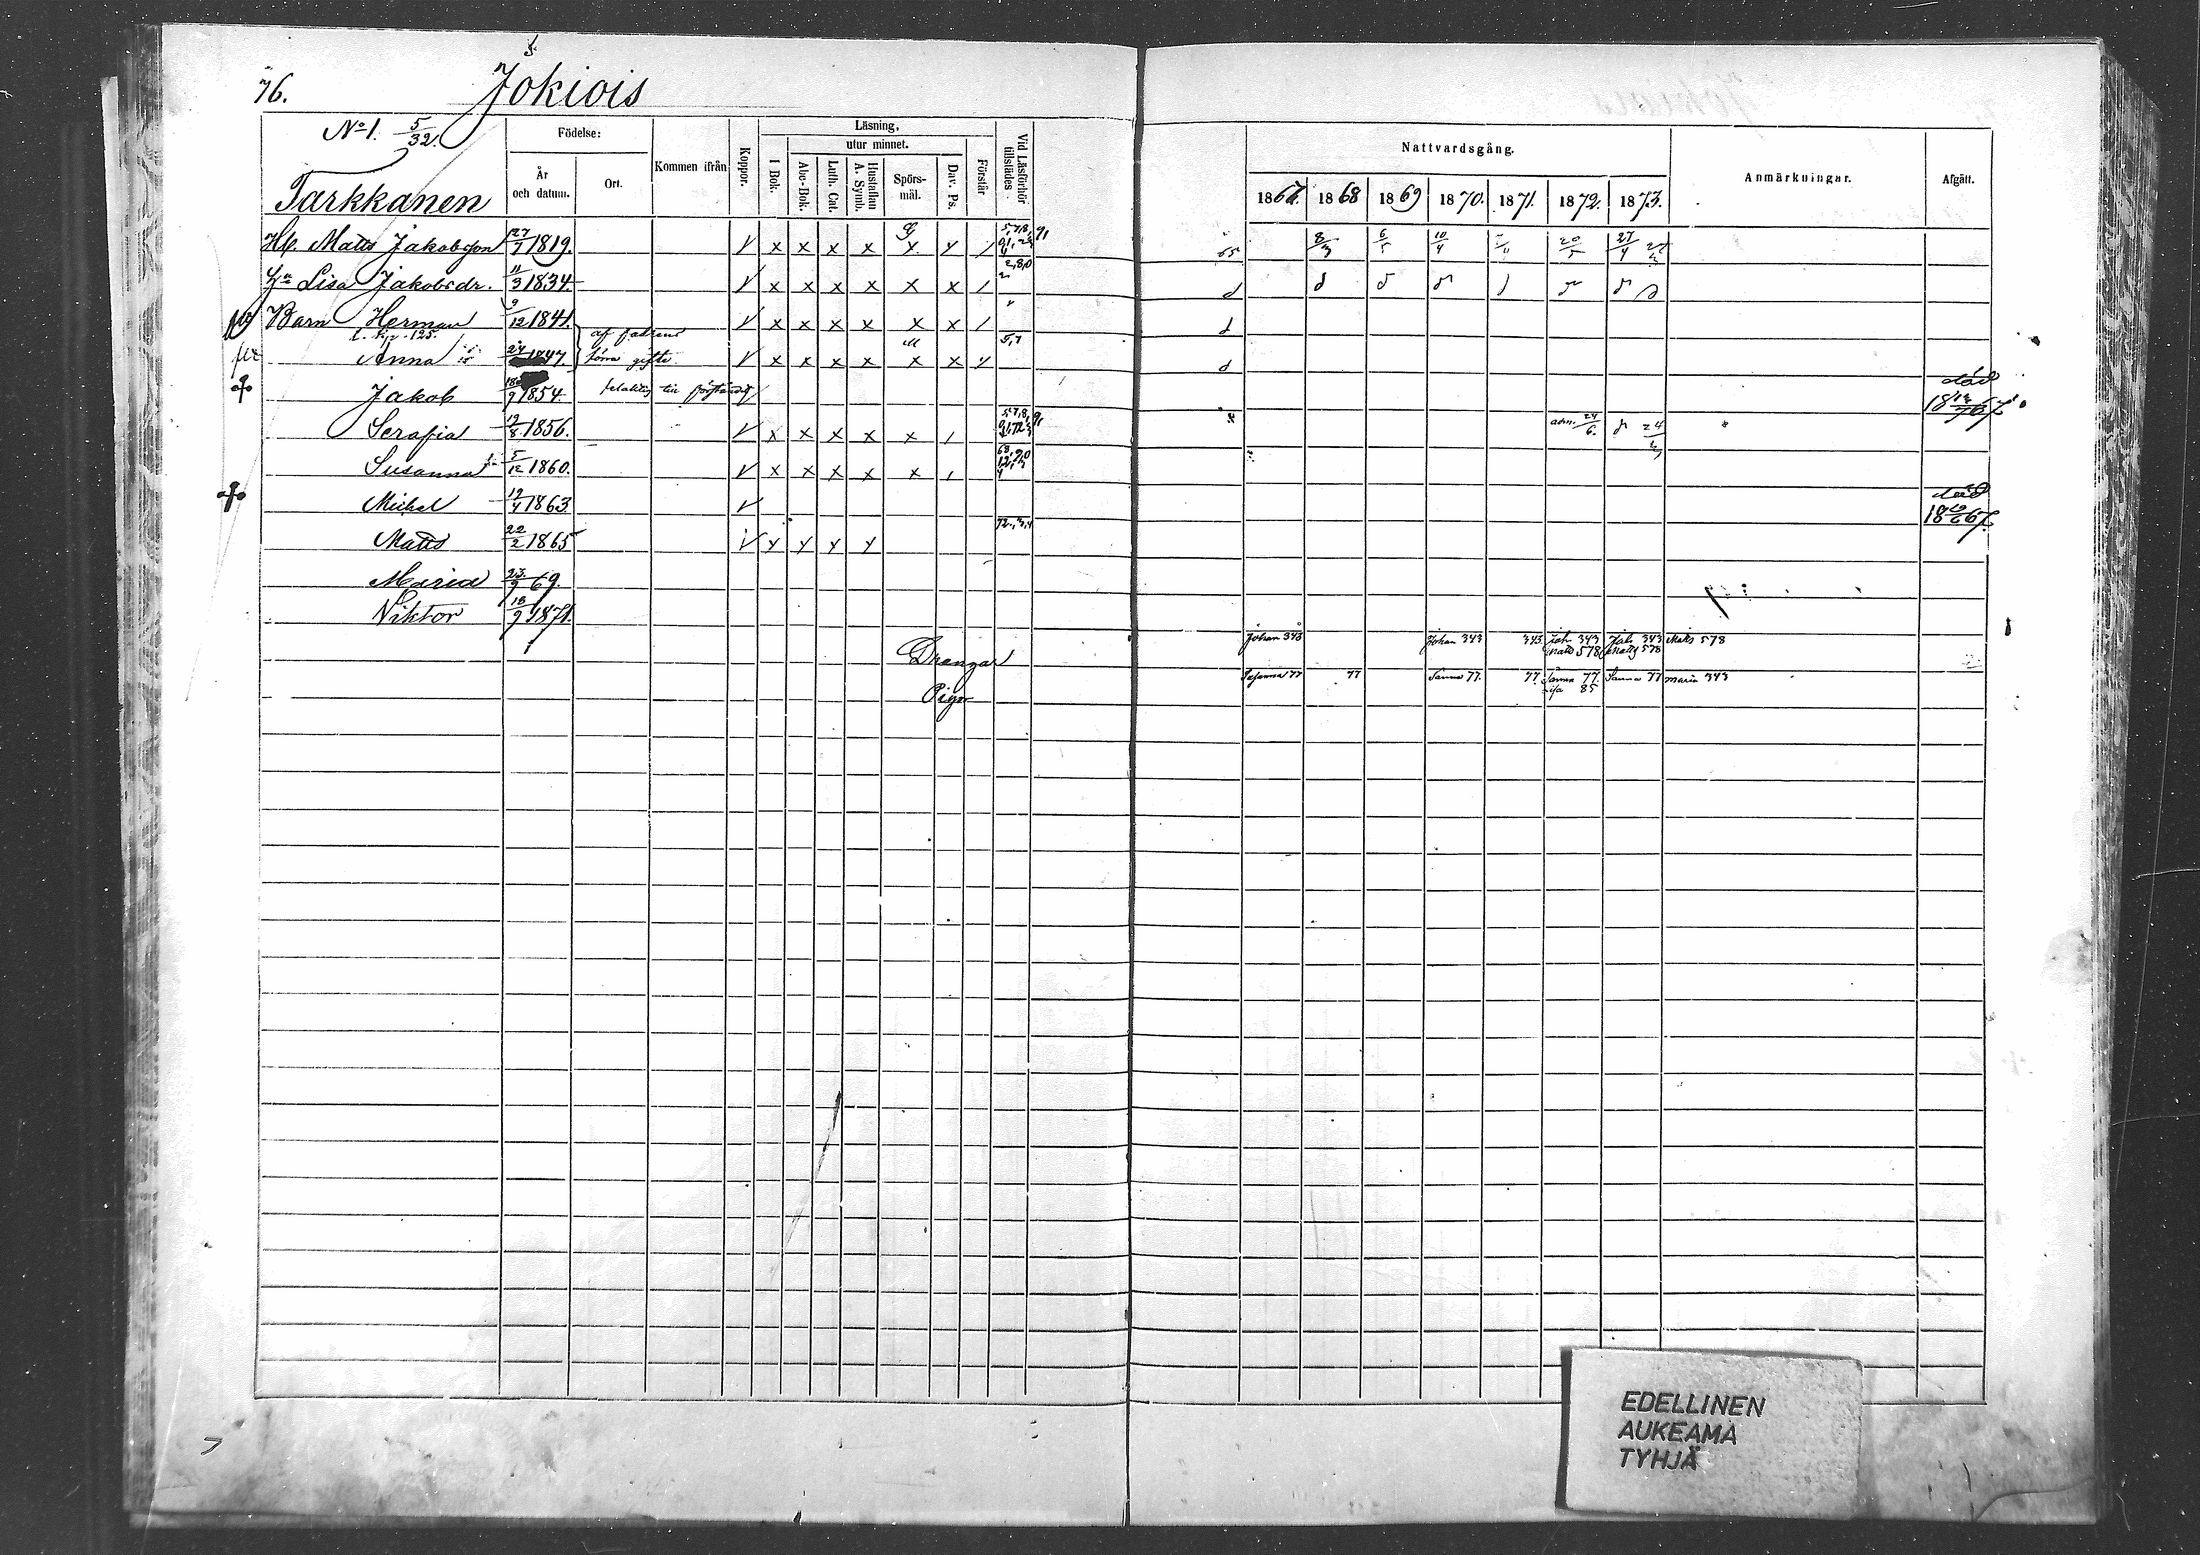 76. Jokiois
No 1. 5/32.
Tarkkanen
Födelse:
År och datum.
Ort.
Kommen ifrån
Koppor.
Läsning,
utur minnet.
I Bok.
Abc-Bok.
Luth. Cat.
Hustaflan A. Symb.
Spörs-mål.
Dav. Ps.
Förstår
Vid Läsförhör tillstädes
Nattvardsgång.
1867. 1868 1869 1870. 1871. 1872. 1873.
Anmärkningar.
Afgått.
Matts Jakobsson 27/7 1819. V x x x x x
65 8/3 6/5 10/4 20/5 27/4
Lisa Jakobsdr. 11/3 1834. V x x x x x x /
Barn Herman 9/12 1841. V x x x x x x /
125.
af fadrens
Anna 24 1847. förra gifte. V x x x x x x
Jakob 9 1854 död 18
Serafia 19/8 1856. V x x x x x / adm. 24/6. 24
Susanna 5/12 1860. V x x x x x /
Mickel 19/4 1863 V död 18 67.
Matts 22/2 1865 V
72.,3,4
Maria 23/9 69.
Viktor 18/9 1871.
Drengar Johan 343 Johan 343 343 Joh 343 Joh 343 Mats 578
Matts 578 Matts 578
Pigor Susanna 77 77 Sanna 77. 77 Sanna 77. Sanna 77 Maria 343
Lisa 85
EDELLINEN
AUKEAMA
TYHJÄ